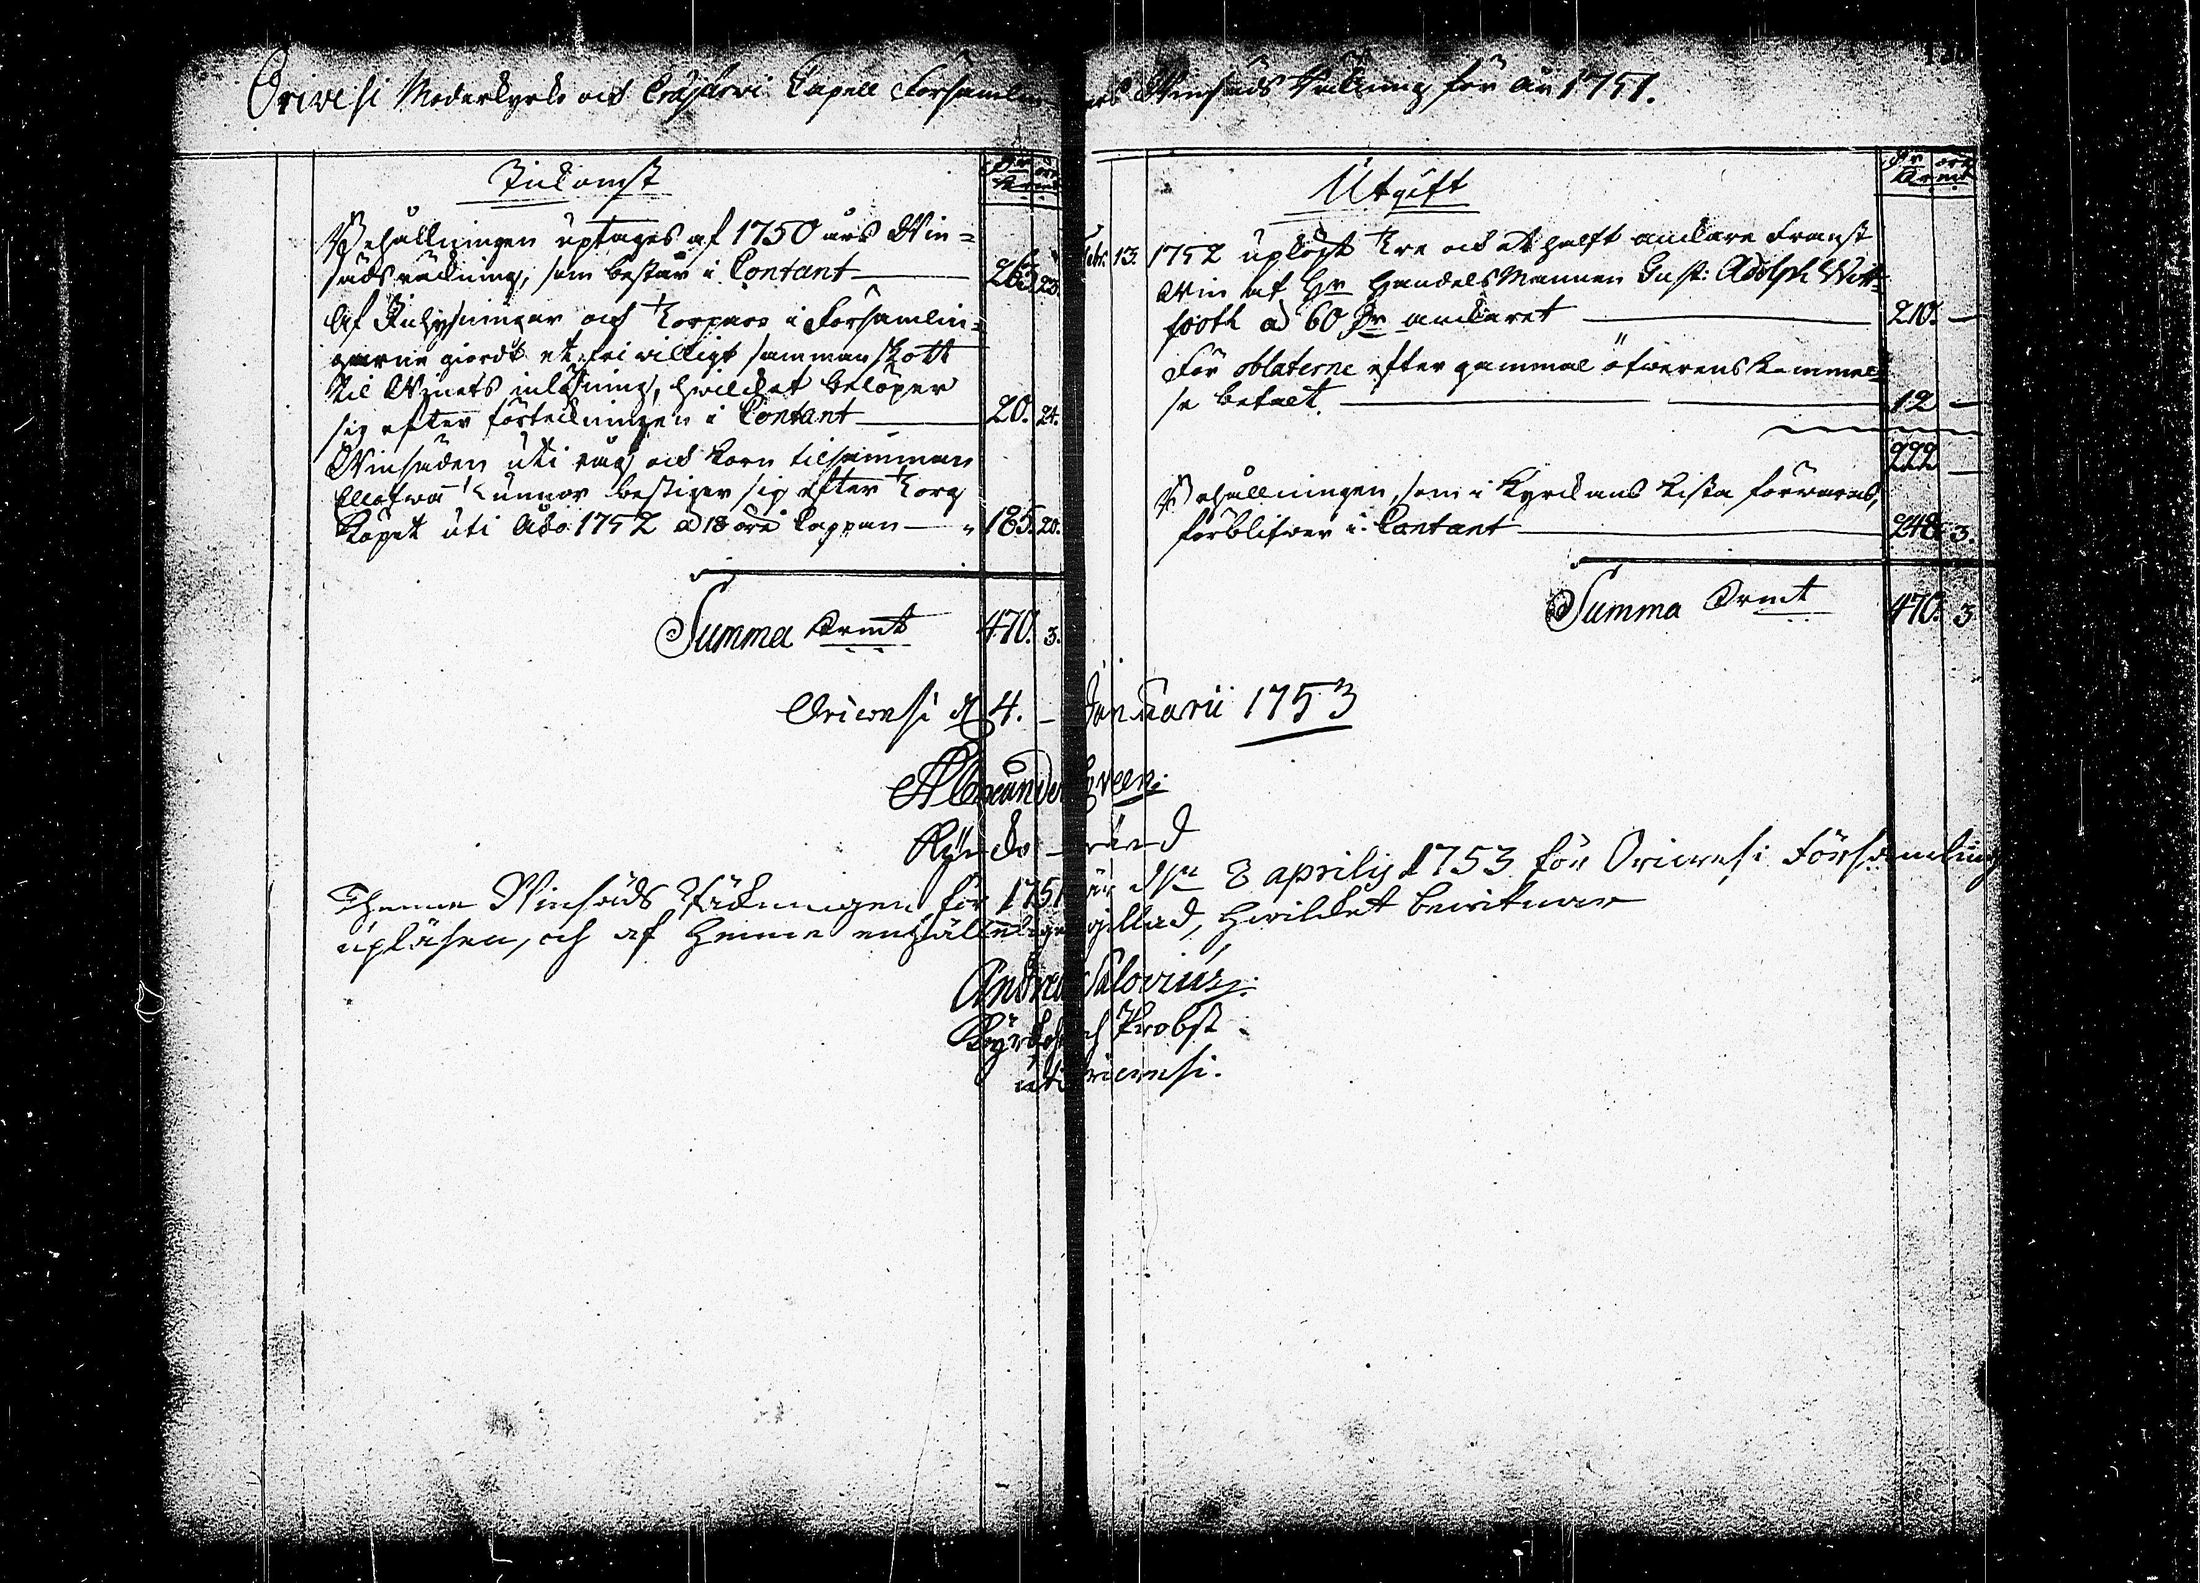 Orivesi Moderkyrko och Eräjärvi Capell Församlin
gars Winsäds Räkning för År 1751.
Inkomst
Dr öre
Kmt
Behållningen uptages af 1750 års Win=
säds räkning, som består i Contant — 263. 23.
Af Inhysingar och Torpare i Församlin=
garne giordt ett friwilligt sammanskott
til Winets inlösning, hwilcket belöper
sig efter förteckningen i Contant — 20. 24.
Winsäden uti råg och korn tilsamman
Tunnor bestiger sig efter Torg
Köpet uti Åbo 1752 ad 18 öre Kappan — 185. 20.
Summa Kmt 470. 3.
Utgift
Dr öre
Kmt
Febr: 13. 1752 upköpt Tre och et halft anckare Franst
Win af Hr HandelsMannen Gust: Adolph Witt=
footh ad 60 Dr anckaret — 210. —
För oblaterne efter gammal öfwerenskommel=
se betalt. — 12 —
222 —
Behållningen, som i Kyrckans kista förwaras,
förblifwer i Contant — 248. 3.
Summa Kmt 470. 3
Oriwesi d. 4. Januarii 1753
Alexander
Kyrcko
Thenne Winsäds Räkningen för 1751 är d. 8 aprilis 1753 för Oriwesi Församling
upläsen, och af henne enhälleligen gillad, hwilcket bewitnar
Andreas Salovius.
Kyrckoh och Probst
uti Oriwesi.